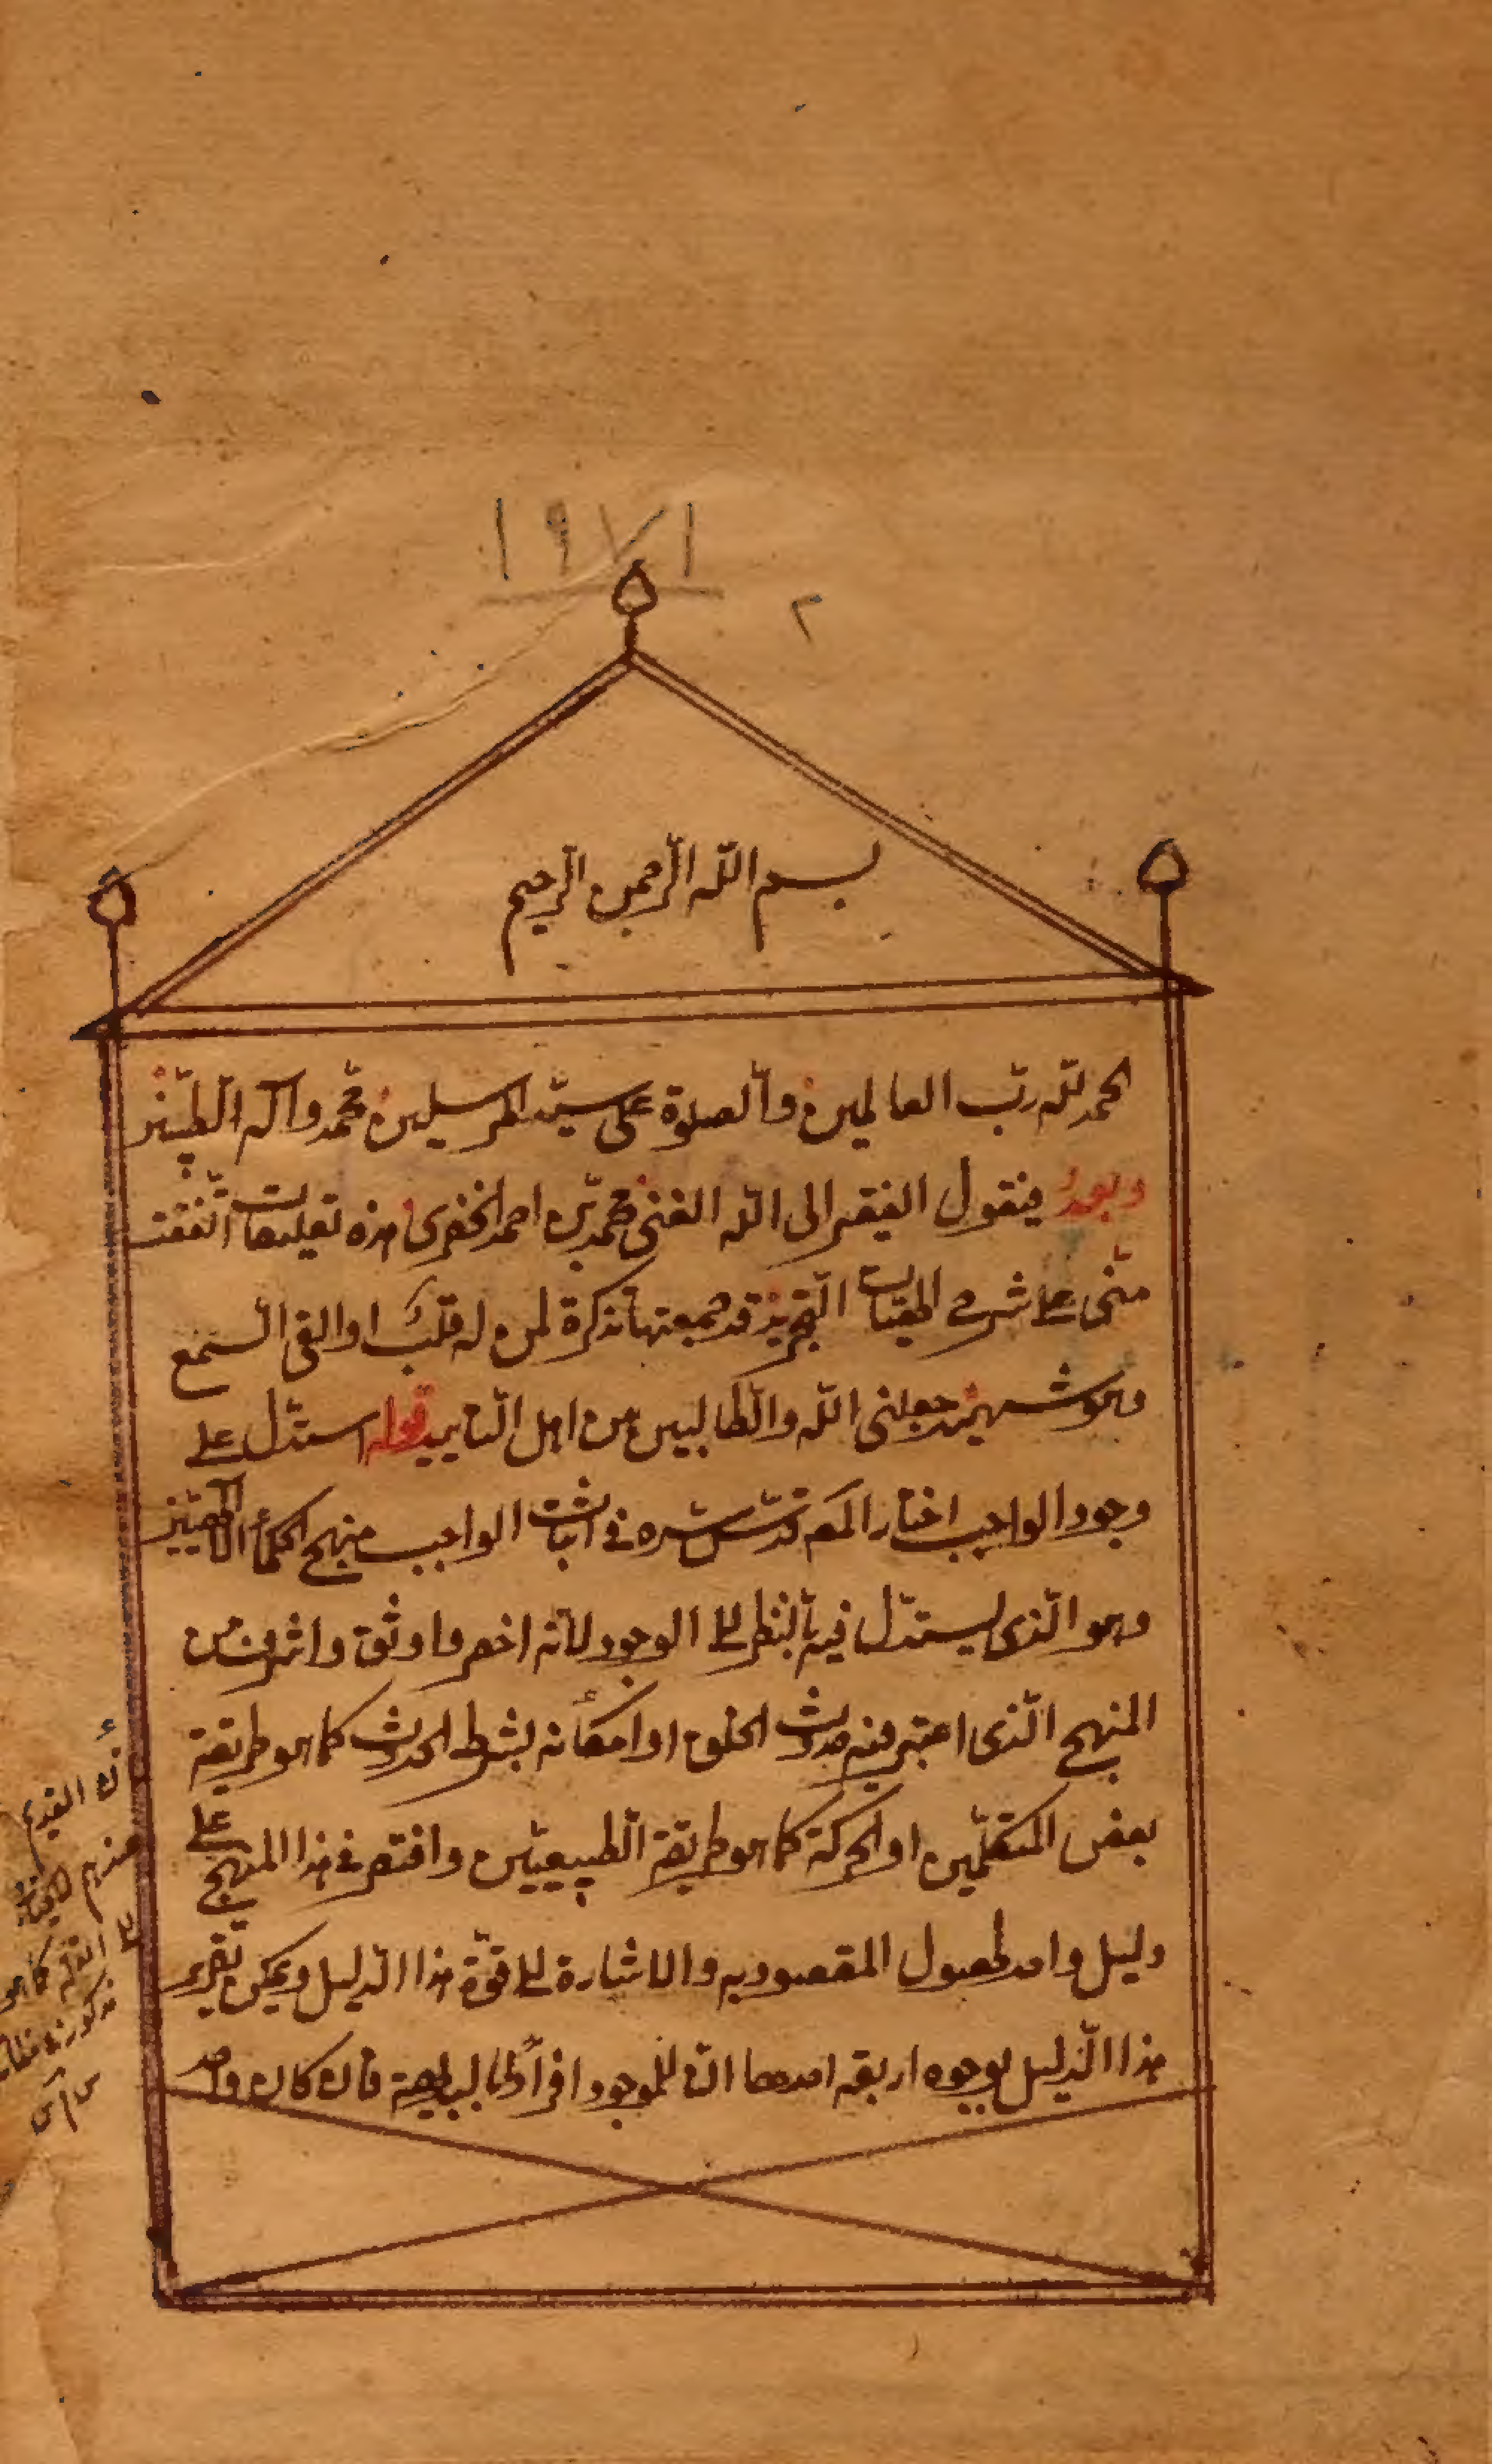 ١٩٧١
٢
بسم الله الرحمن الرحيم
الحمد لله رب العالمين والصلوة على سيد المرسلين محمد وآله الطيبين
وبعد فيقول الفقير الى الله الغنى محمد بن احمد الخفرى هذه تعليقات اتفقت
منى على شرح الهيات التجريد قد جمعتها تذكرة لمن له قلب او القى السمع
وهو شهيد جعلنى الله والطالبين من اهل التاييد قوله استدل على
وجود الواجب اختار المصـ قدس سره فى اثبات الواجب منهج الحكماء الالهيين
وهو الذى يستدل فيه بالنظر الى الوجود لانه اخصر واوثق واشرف من
المنهج الذى اعتبر فيه حدوث الخلق او امكانه بشرط الحدوث كما هو طريقة
بعض المتكلمين او الحركة كما هو طريقة الطبيعيين واقتصر فى هذا المنهج على
دليل واحد لحصول المقصود به والاشارة الى قوة هذا الدليل ويمكن تقرير
هذا الدليل بوجوه اربعة احدها ان للموجود افرادا بالبديهة فان كان واحد
ان القديم
عندهم
كما هو